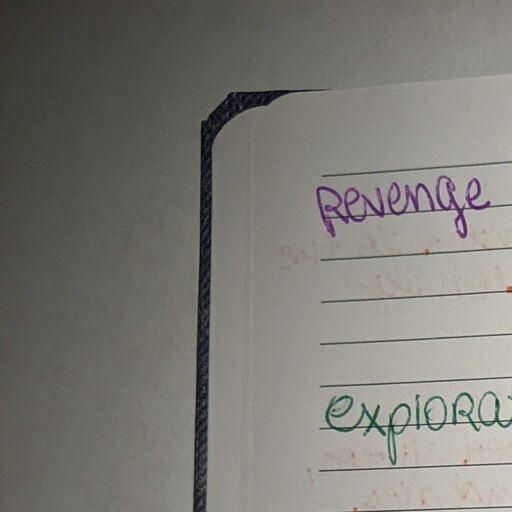 Revenge
explora